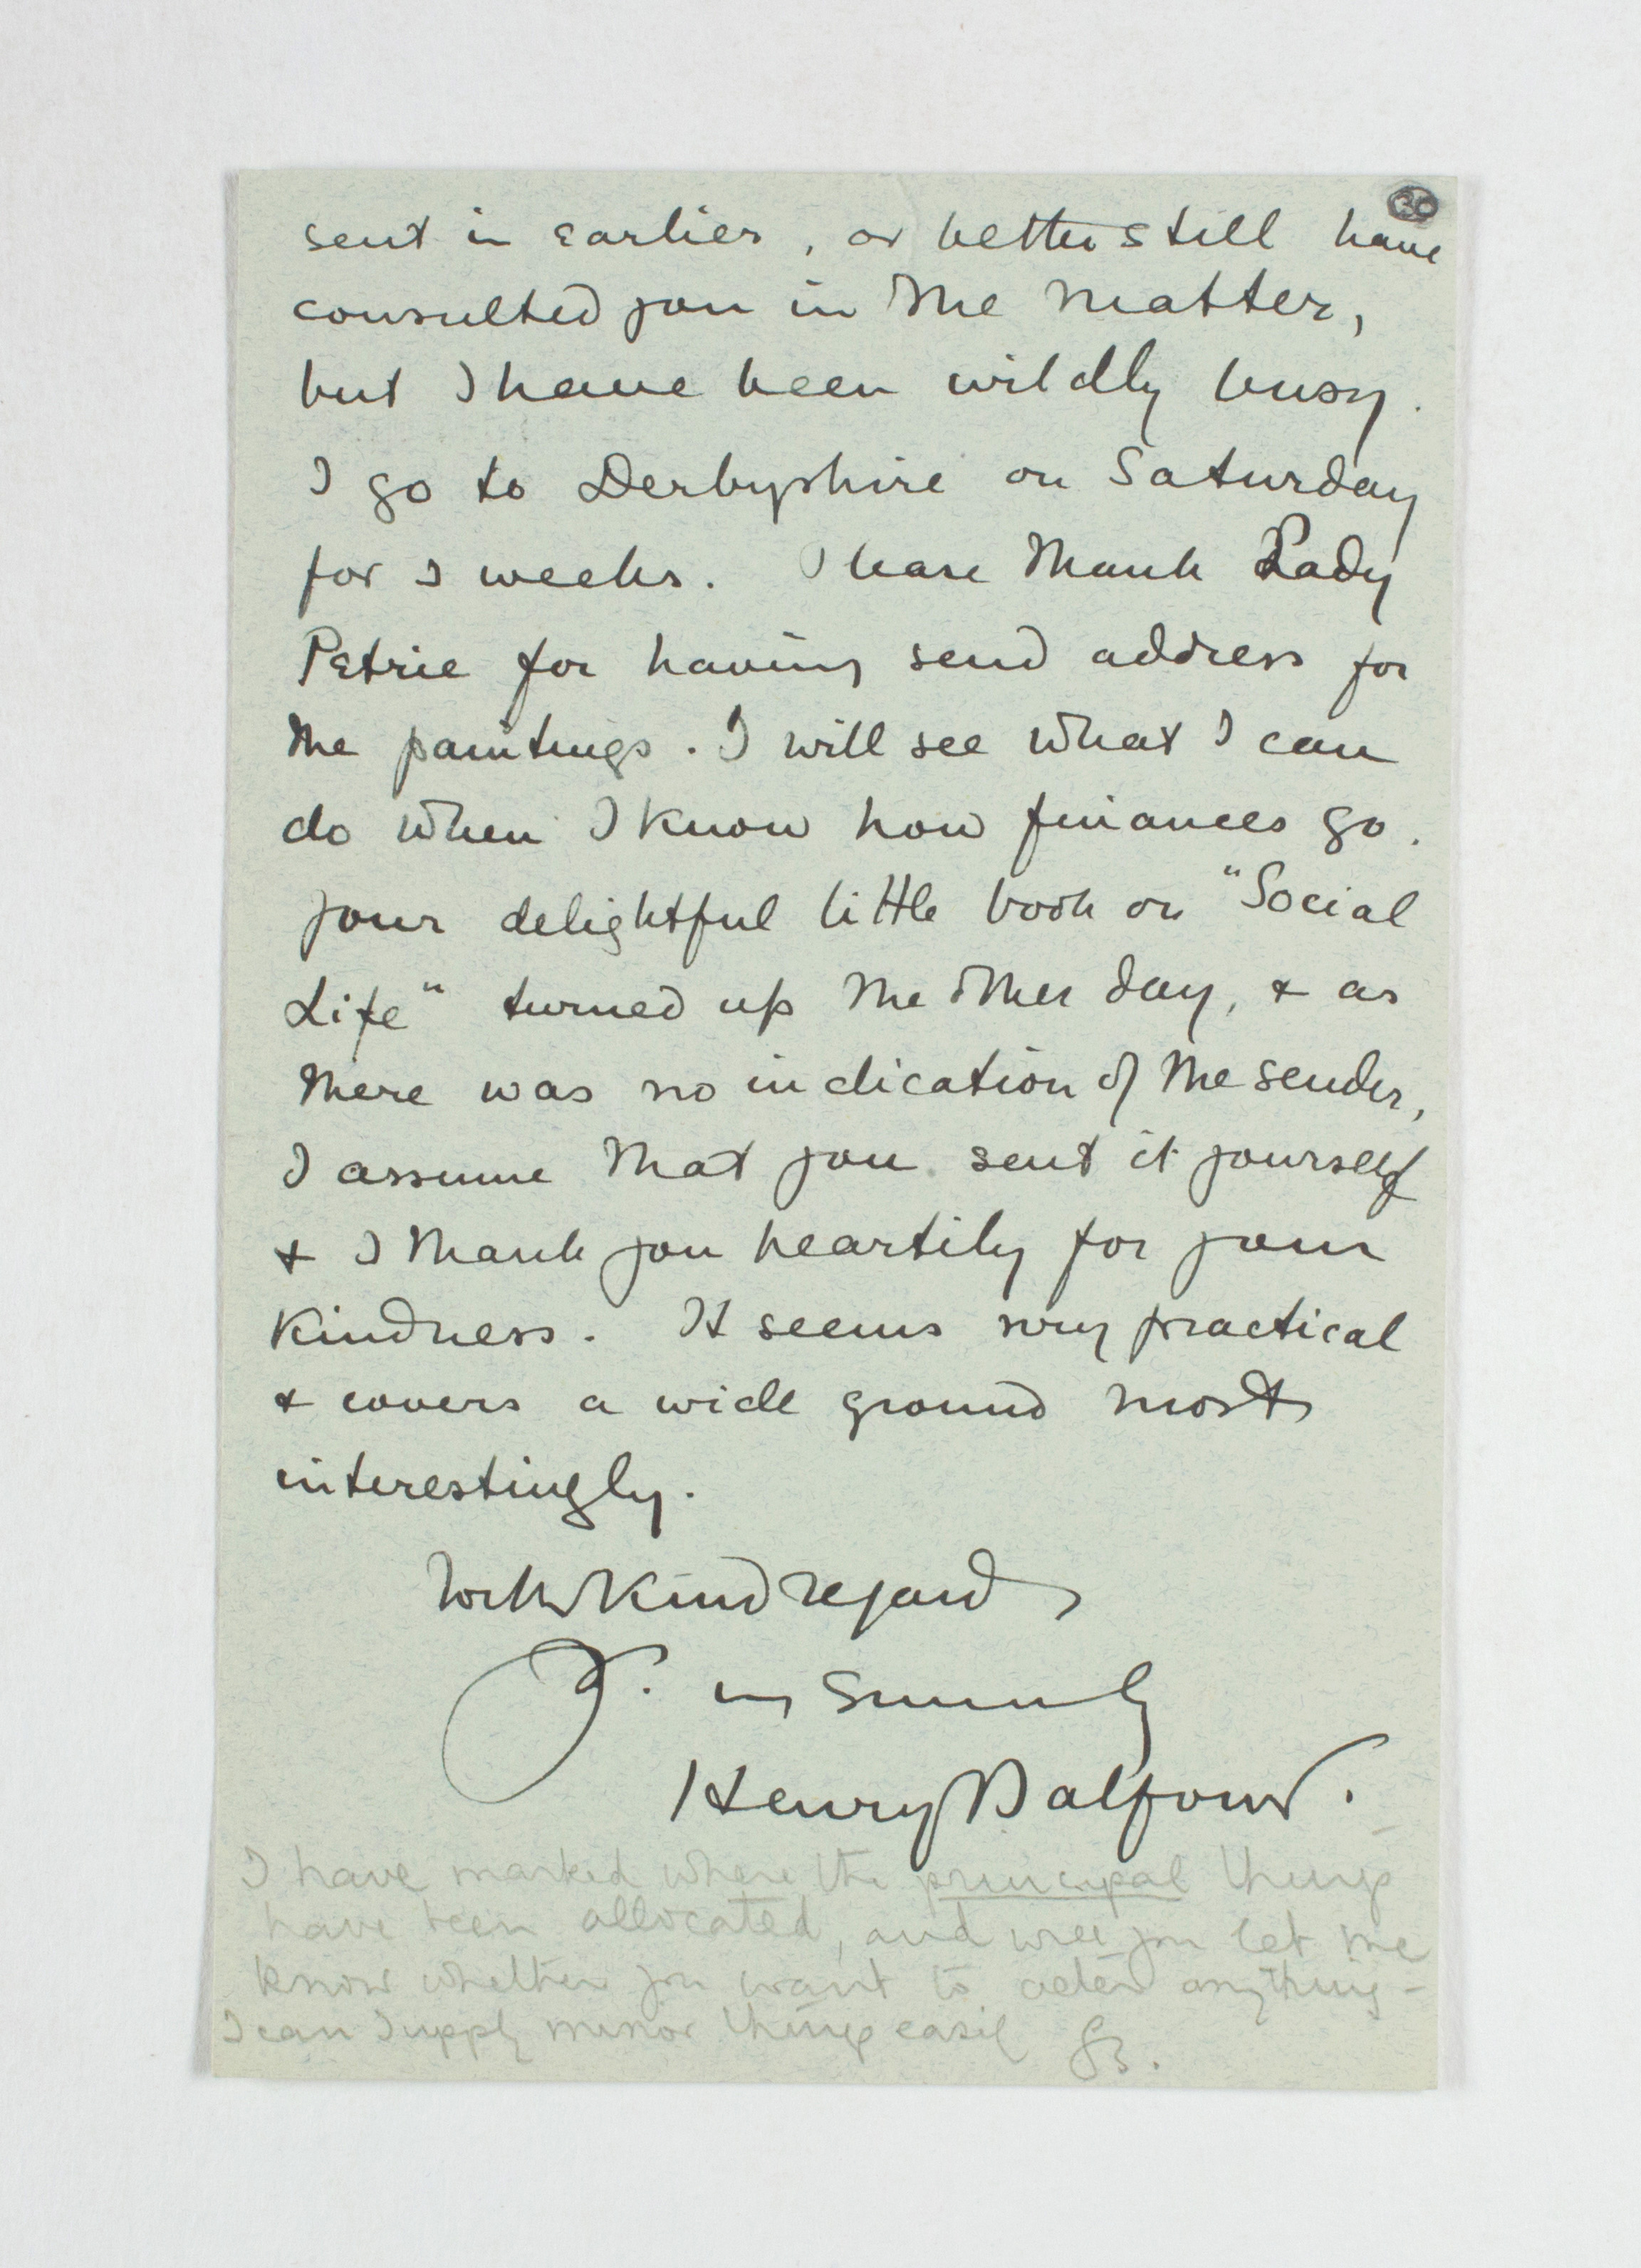 30
sent in earlier, or better still have
consulted you in the matter,
but I have been wildly busy.
I go to Derbyshire on Saturday
for 3 weeks. Please thank Lady
Petrie for having send address for
the paintings. I will see what I can
do when I know how finances go.
Your delightful little book on "Social
Life" turned up the other day, & as
there was no indication of the sender,
I assume that you sent it yourself
& I thank you heartily for your
kindness. It seems very practical
& covers a wide ground most
interestingly.
With kind regards
Y. very sincerely
Henry Balfour.
I have marked where the principal things
have been allocated, and will you let me
know whether you want to alter anything -
I can supply minor things easily